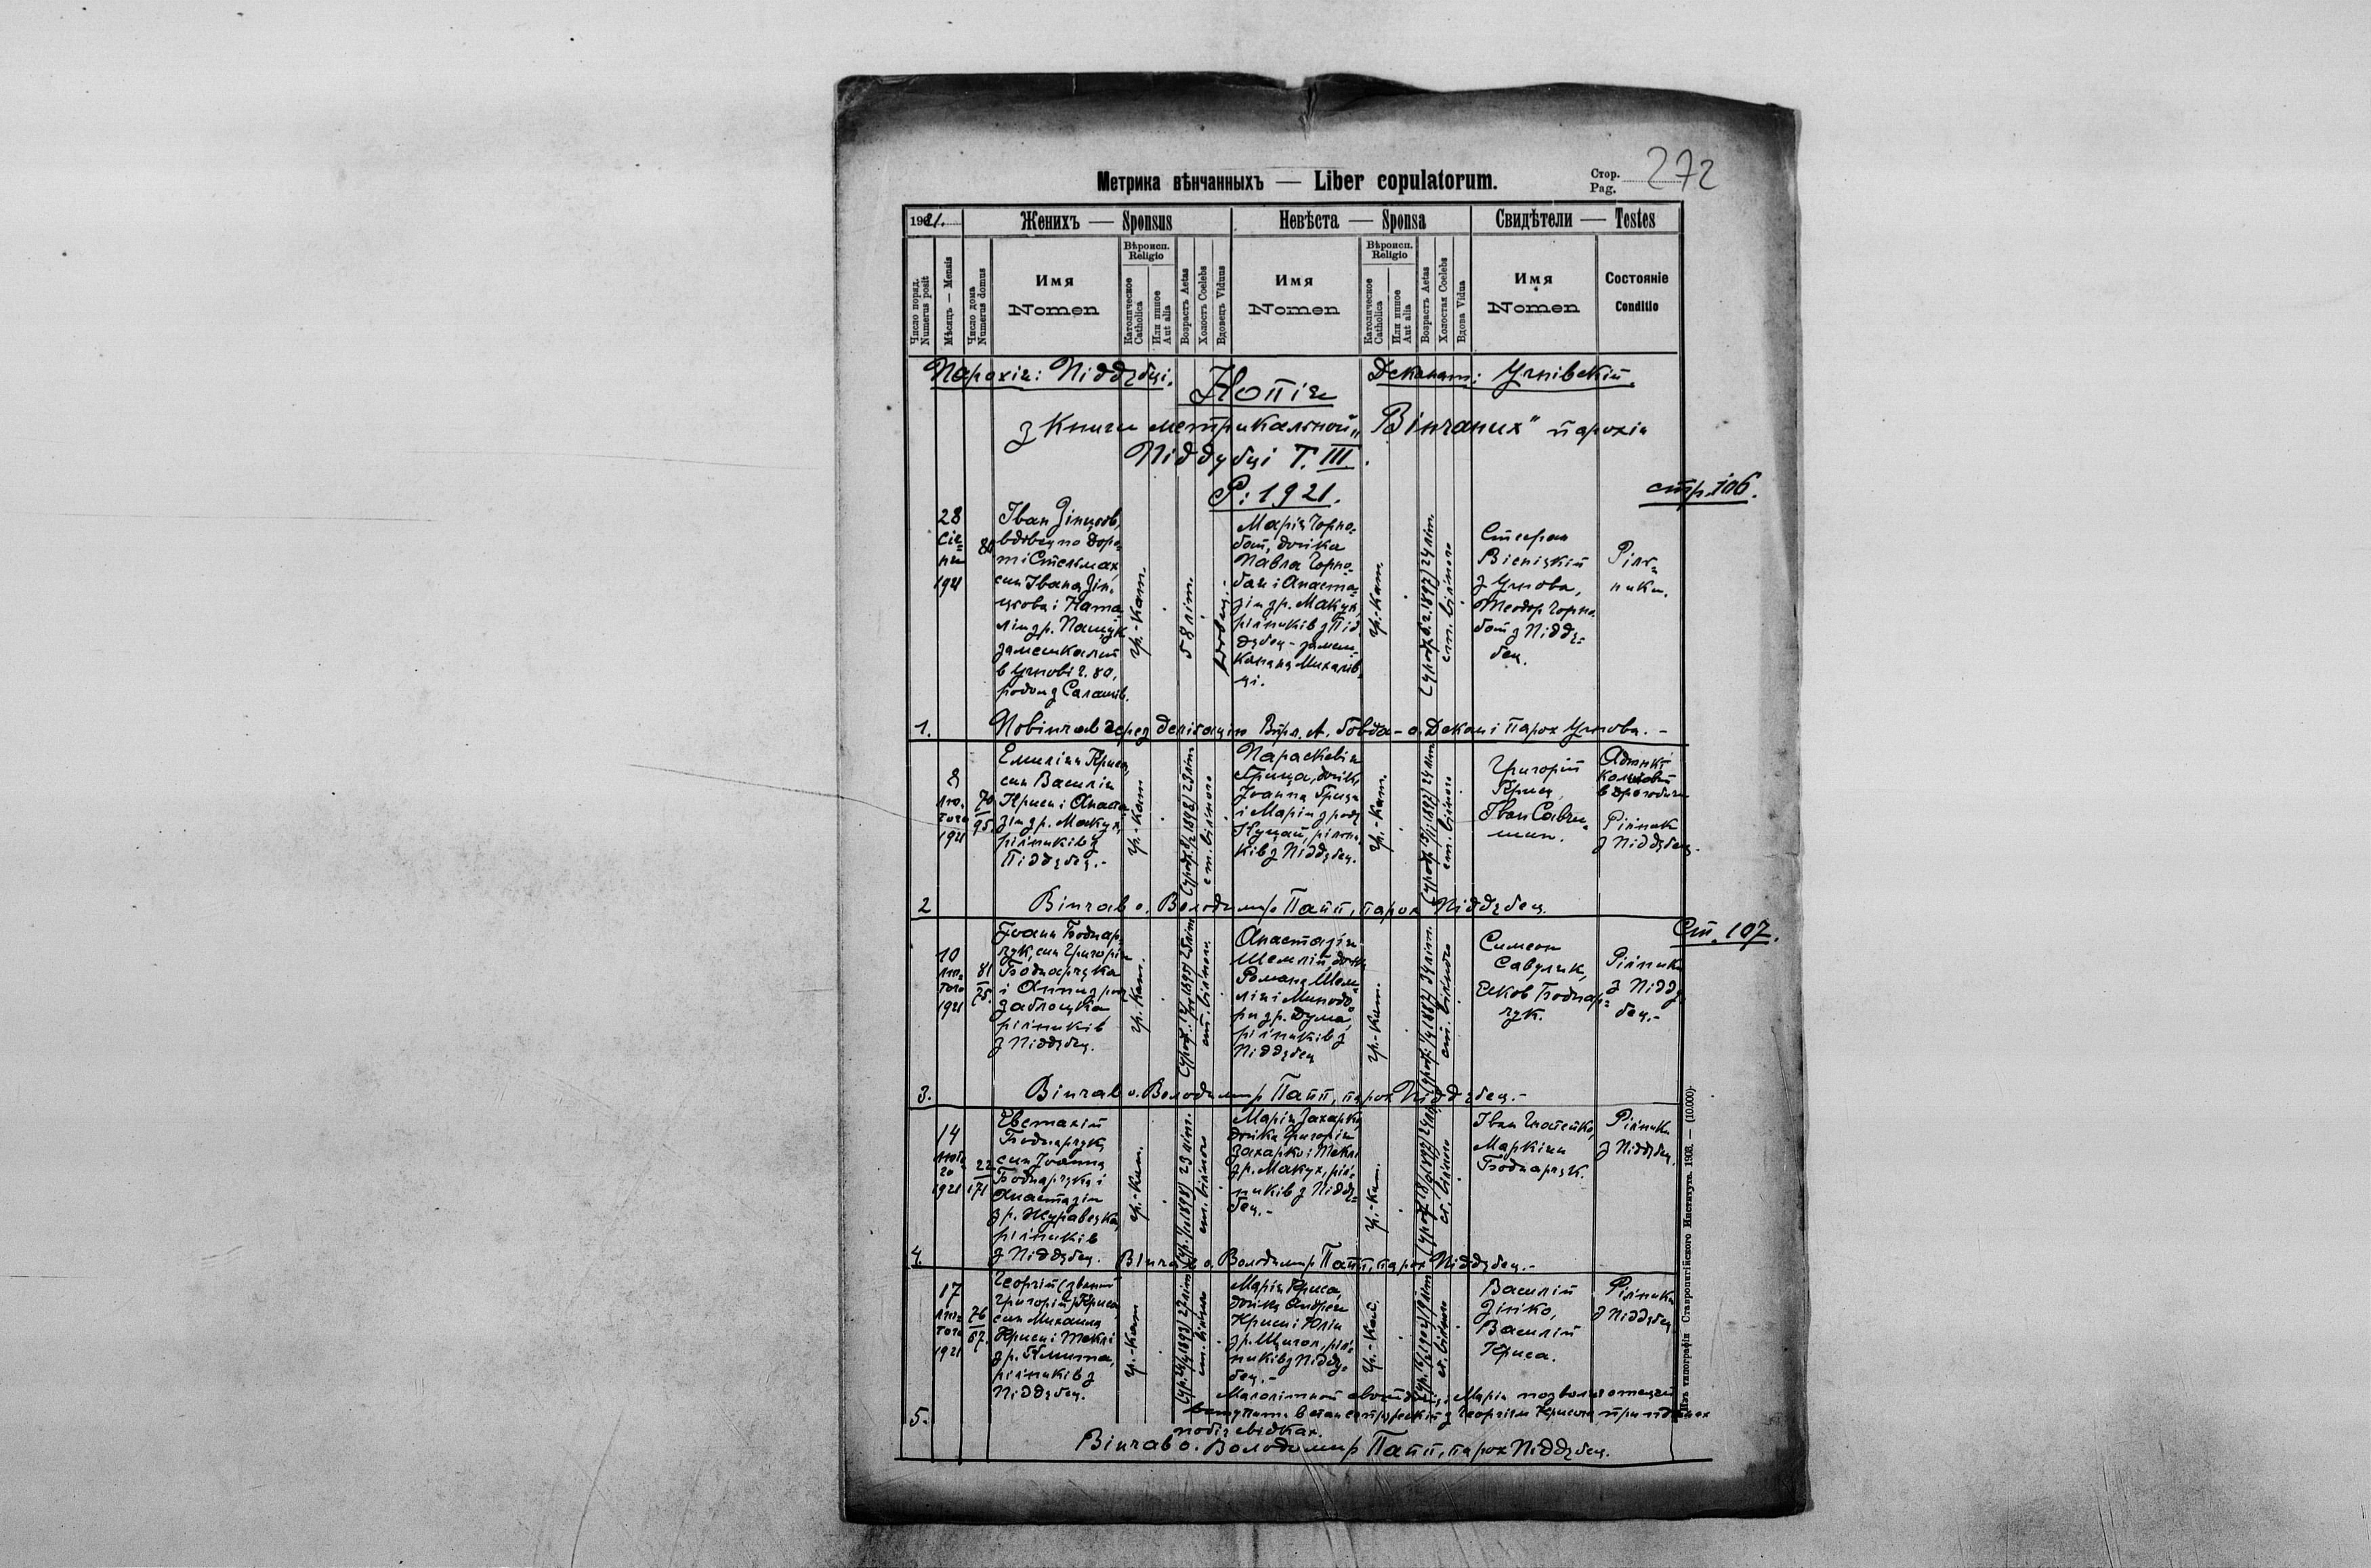 Метрика вѣнчанныхъ — Liber copulatorum.
Стор.
Pag. 272
1921.
Женихъ — Sponsus
Невѣста — Sponsa
Свидѣтели — Testes
Число поряд.
Numerus posit
Мѣсяць — Mensis
Число дома
Numerus domus
Имя
Nomen
Вѣроисп.
Religio
Католическое
Catholica
Или инное
Aut alia
Возрастъ Aetas
Холостъ Coelebs
Вдовецъ Viduus
Имя
Nomen
Вѣроисп.
Religio
Католическое
Catholica
Или инное
Aut alia
Возрастъ Aetas
Холостая Coelebs
Вдова Vidua
Имя
Nomen
Состояніе
Conditio
Парохія: Піддубці.
Деканат: Угнівский.
Копія
з Книги метрикальної „Вінчаних" парохія
Піддубці Т. III.
Р: 1921.
стр. 106.
28
Січ=
ня
1921
80
Іван Зінцов,
вдовец по Доро
ті Стельмах,
син Івана Зін=
цова і Ната
лія з р. Пащук
замешкалий
в Угнові ч. 80,
родом з Салашів.
гр.-кат.
58 літ.
вдовец.-
Марія Чорно=
бай, дочка
Павла Чорно=
бая і Анаста=
зія з р. Макух,
рільників з Під
дубец - замеш=
кана на Михалів
ці.
гр.-кат.
24 літ.
ст. вільного
Стефан
з Угнова,
Теодор Чорно=
бай зІдду=
бец.
Ріль=
ники.
1.
Повінчав через делігацію Впр. А. Бовда - о. Декан і парох Угнова. -
8
лю=
того
1921
70
95.
Емілїян Криса,
син Василія
Криси і Анаста
зія з р. Макух,
рільників з
Піддубец.-
гр.-кат
23 літ
ст. вільного
Параскевія
Грица, дочка
Іоанна Грици
і Марія з роду
Куцай, рільни=
ків з Піддубец.
гр.-кат.
24 літ
ст. вільного
Григорій
Криса,
Іван Савчи=
шин.
Рільник
з Піддубец.
2
Вінчав о. Володимир Папп, парох Піддубец.
Ст. 107.
10
лю=
того
1921
81
75.
Іоанн Боднар=
чук, син Григорія
Боднарчука
і Анни з роду
Заблоцка,
рільників
з Піддубец.
гр.-кат.
25 літ
ст. вільного.
Анастазія
Шемлій, дочка
Романа Шем=
лія і Минодо=
ри з р. Дума,
рільників з
Піддубец
гр.-кат.
34 літ.
ст. вільного
Симеон
Савулик,
Яков Боднар=
чук.
Рільники
зІдду=
бец.-
3.
Вінчав о. Володимир Папп, парох Піддубец.-
14
лют
го
1921
22
171
Евстахій
Боднарчук,
син Іоанна
Боднарчука і
Анастазія
з р. Журавецка,
рільників
з Піддубец.
гр.-кат.
23 літ.
ст. вільного
Марія Захарко,
дочка Григорія
Захарко і Теклі
з р. Макух, ріль=
ників з Підду=
бец.-
гр.-кат.
ст. вільного
Іван Ігнатейко,
Маркіян
Боднарчук.
Рільники
з Піддубец.
4.
Вінчав о. Володимир Папп, парох Піддубец.-
17
лю=
того
1921
76
67.
Георгій (званий
Григорій) Криса,
син Михаила
Криси і Теклі
з р. Климта,
рільників з
Піддубец.
гр.-кат
27 літ
ст. вільного
Марія Криса,
дочка Андрея
Криси і Юлія
з р. Щигол, ріль=
ників з Підду=
бец.-
гр.-кат.
19 літ
ст. вільного
Василій
Зінко,
Василій
Криса.
Рільники
з Піддубец
Малолітной своїй дочці Марія позволяє отець єї
вступити в стан супружескій з Георгієм Крисою при підписаних
побіч свідках.
5.
Вінчав о. Володимир Папп, парох Піддубец.
Изъ типографіи Ставропигійского Института. 1908. — (10.000)